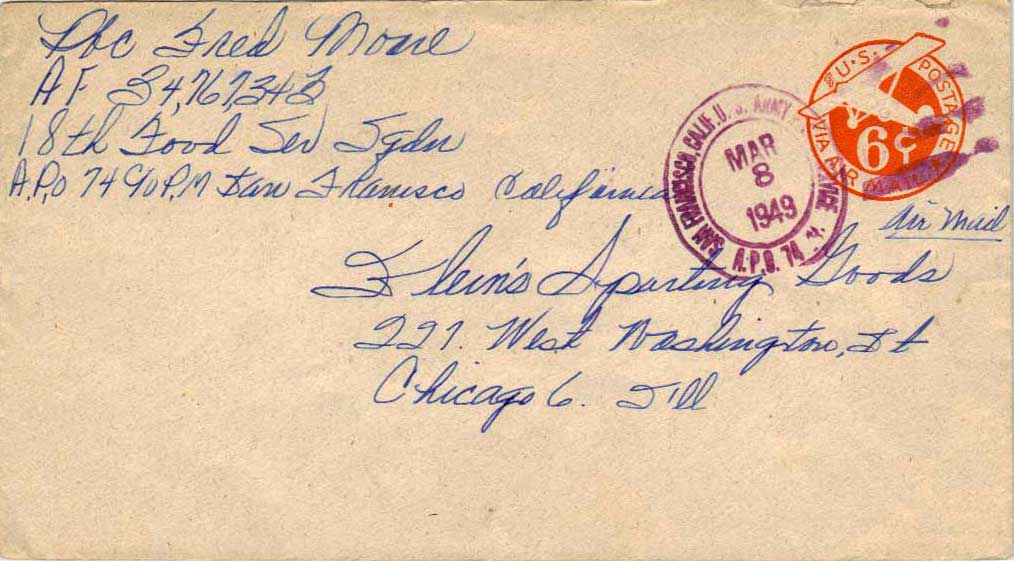 Pvc Fred Moore
AF 34,767,343
18th Food Ser Sqdn
A.P.O 74 C/O P.M San Francisco California
U.S. POSTAGE
VIA AIR MAIL
6¢
SAN FRANCISCO, CALIF. U.S. ARMY SERVICE
MAR
8
1949
A.P.O. 74
Air Mail
Klein's Sporting Goods
227. West Washington, St
Chicago 6. Ill